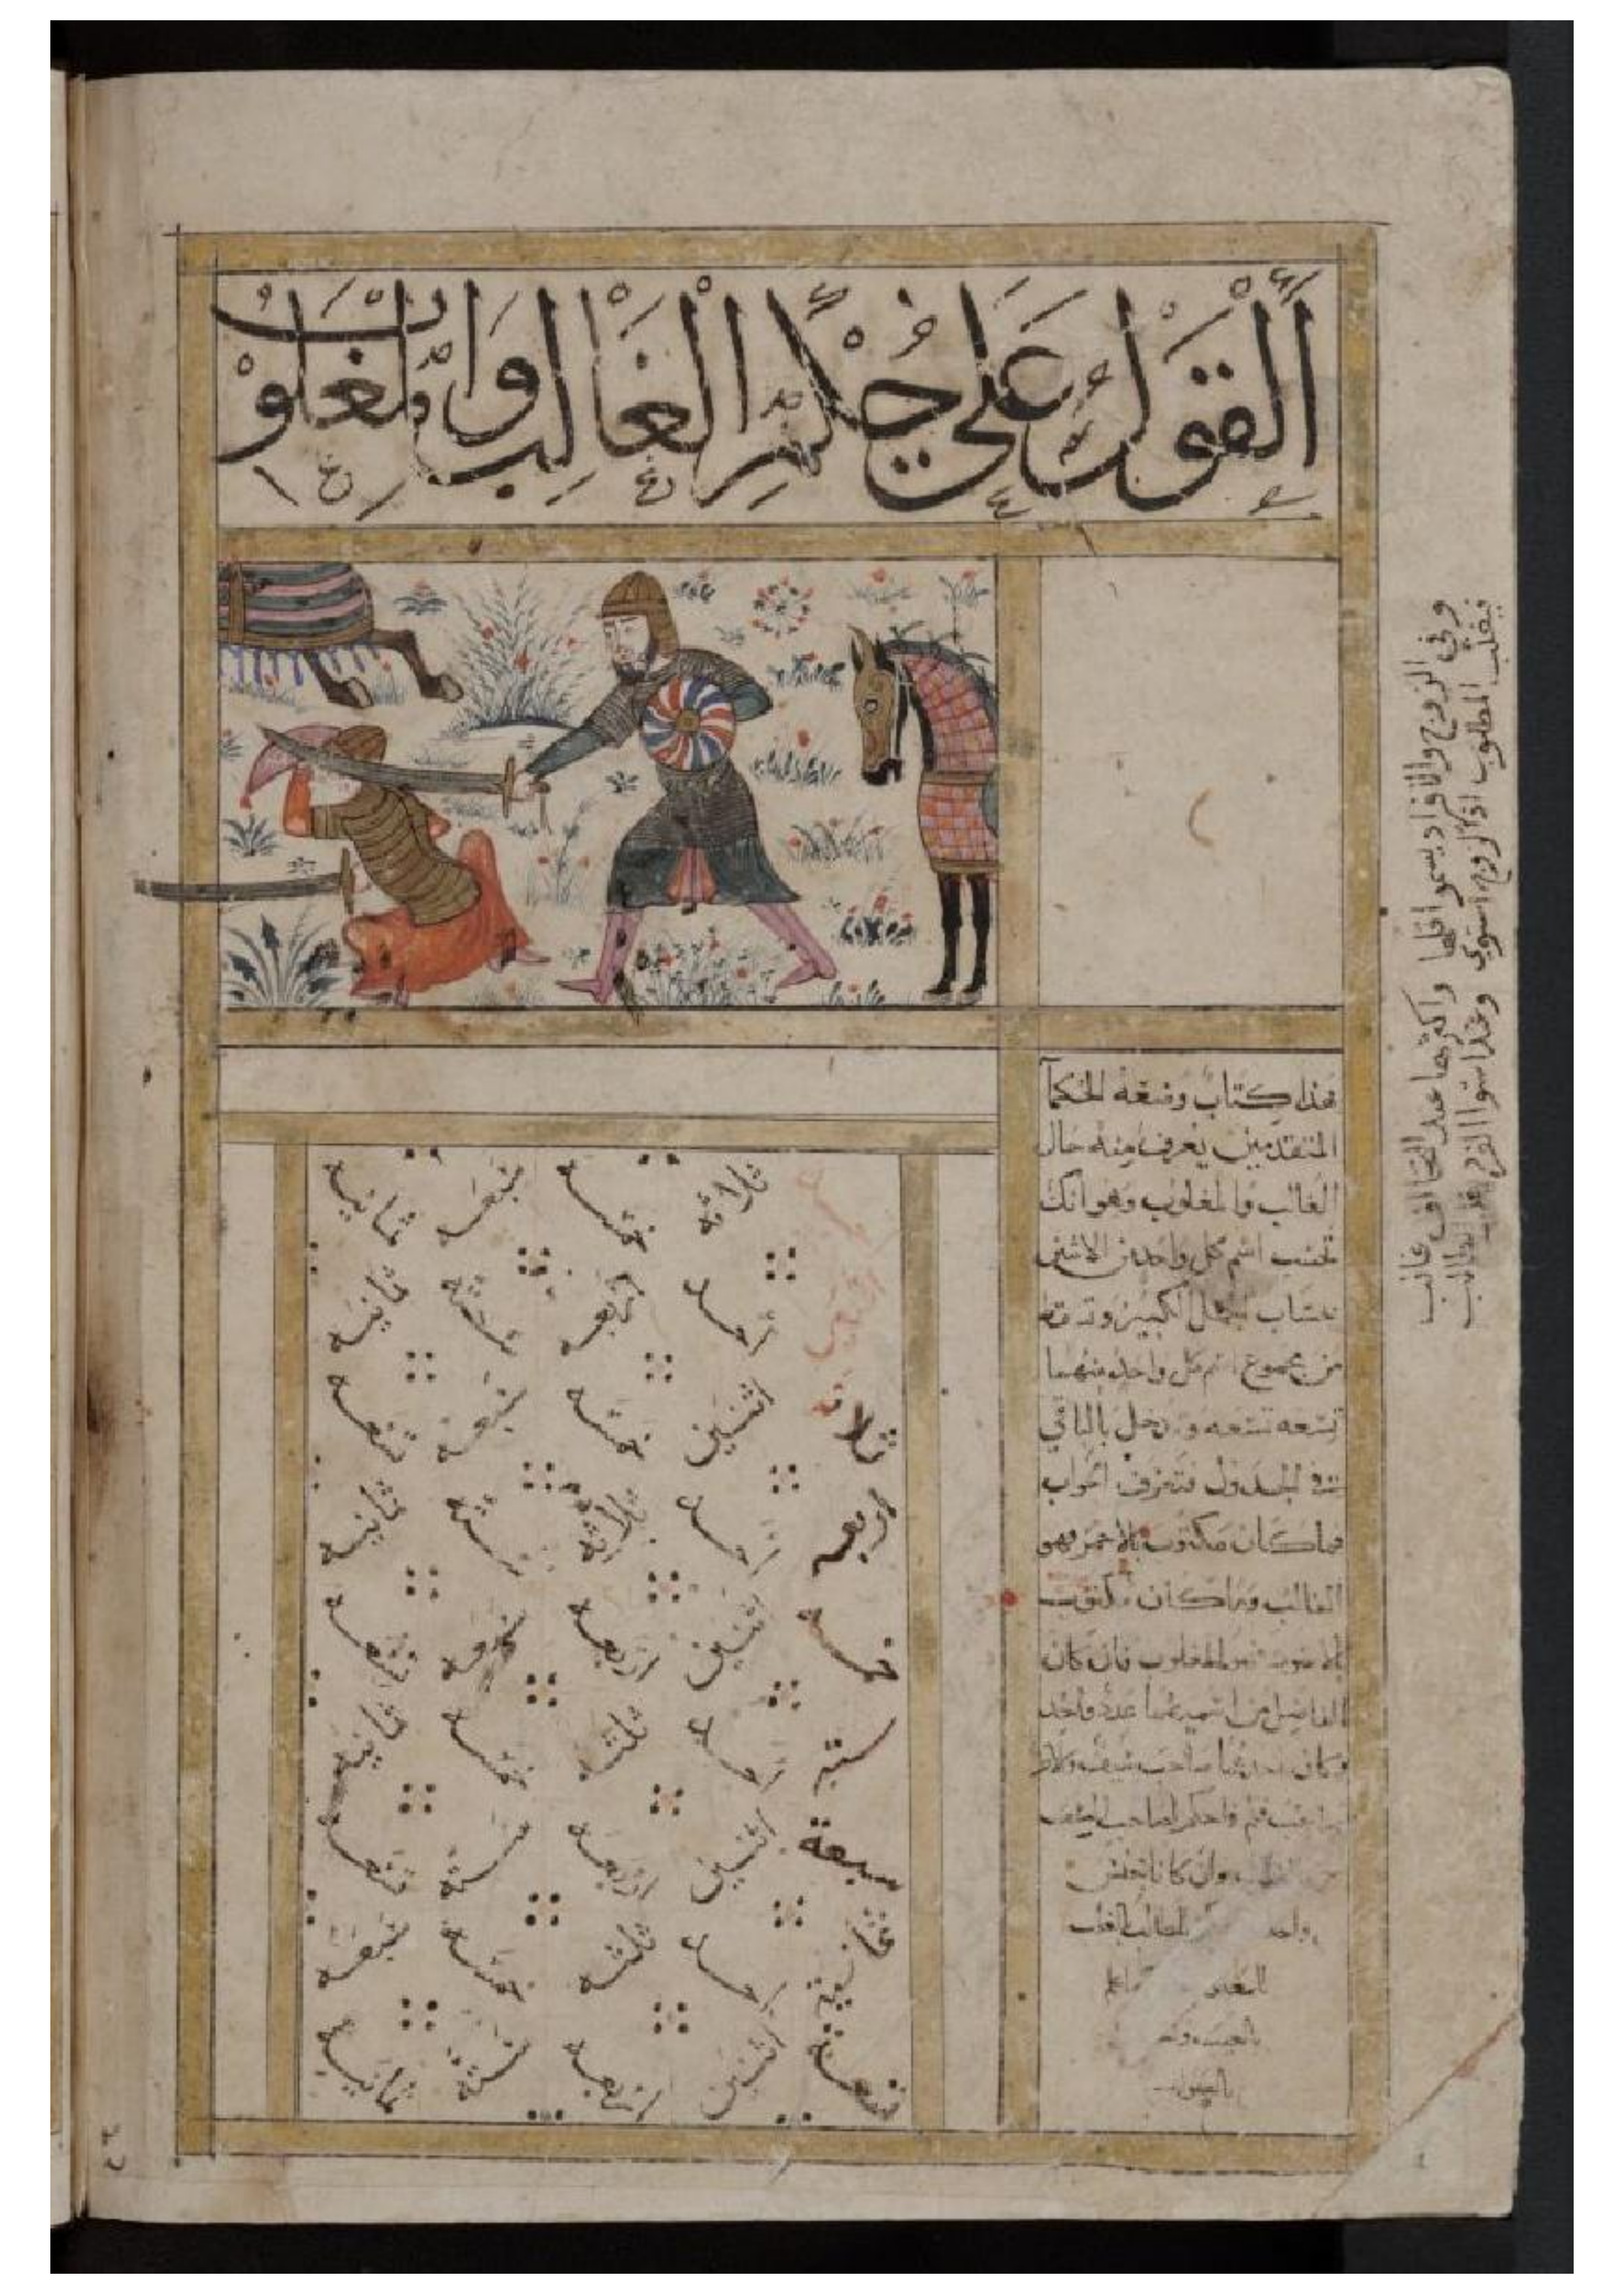 القول على حكم الغالب والمغلوب
هذا كتاب وضعه الحكما
المتقدمين يعرف منه حال
الغالب والمغلوب وهو انك
تحسب اسم كل واحد من الاثنين
بحساب الجمل الكبير و
من مجموع اسم كل واحد منهما
تسعه تسعه وتدخل بالباقي
في الجدول فتعرف الجواب
فما كان مكتوب بالاحمر فهو
الغالب وما كان مكتوب
فهو المغلوب فان كان
الفاضل من اسميهما عدد واحد
وكان احدهما صاحب
فاحكم لصاحب
وان كانا
واحد الطالب
ثلاثة خمسه سبعه ثمانيه
احد اربعه سته ثمانيه
ثلاثة اثنين خمسه سبعه تسعه
اربعه احد ثلاثة سته ثمانيه
خمسه اثنين اربعه سبعه تسعه
ستة احد ثلثه خمسه ثمانيه
سبعة اثنين اربعه ستة تسعه
ثمانية احد ثلثه خمسه سبعه
تسعة اثنين اربعه ستة ثمانيه
وفي الزوج والافراد يسموا اقلها واكثرها عند التخالف غالب
فيغلب المطلوب اذ الزوج استوي وعند استوا الفرد يغلب الطالب